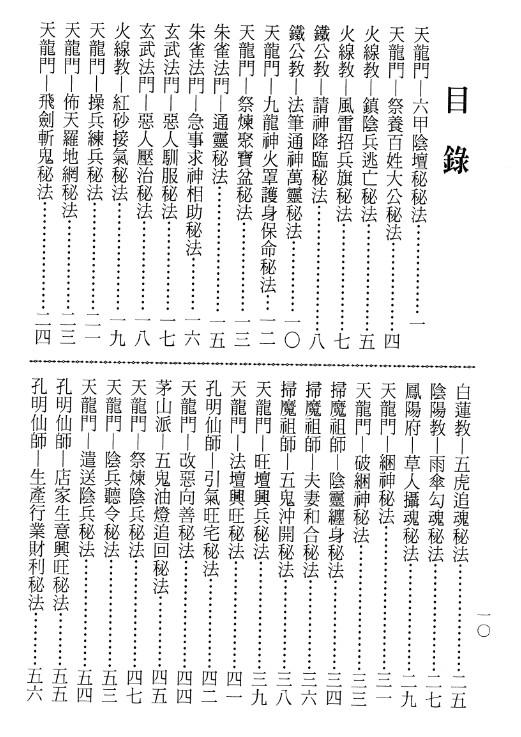 目錄
天龍門—六甲陰壇秘秘法………一
天龍門—祭養百姓大公秘法………四
火線教—鎮陰兵逃亡秘法………五
火線教—風雷招兵旗秘法………七
鐵公教—請神降臨秘法………八
鐵公教—法筆通神萬靈秘法………一〇
天龍門—九龍神火罩護身保命秘法…一二
天龍門—祭煉聚寶盆秘法………一三
朱雀法門—通靈秘法………一五
朱雀法門—急事求神相助秘法………一六
玄武法門—惡人馴服秘法………一七
玄武法門—惡人壓治秘法………一八
火線教—紅砂接氣秘法………一九
天龍門—操兵練兵秘法………二一
天龍門—佈天羅地網秘法………二三
天龍門—飛劍斬鬼秘法………二四
白蓮教—五虎追魂秘法………二五
陰陽教—雨傘勾魂秘法………二七
鳳陽府—草人攝魂秘法………二九
天龍門—綑神秘法………三一
天龍門—破綑神秘法………三三
掃魔祖師—陰靈纏身秘法………三四
掃魔祖師—夫妻和合秘法………三六
掃魔祖師—五鬼沖開秘法………三八
天龍門—旺壇興兵秘法………三九
天龍門—法壇興旺秘法………四一
孔明仙師—引氣旺宅秘法………四二
天龍門—改惡向善秘法………四四
茅山派—五鬼油燈追回秘法………四五
天龍門—祭煉陰兵秘法………四七
天龍門—陰兵聽令秘法………五三
天龍門—遣送陰兵秘法………五四
孔明仙師—店家生意興旺秘法………五五
孔明仙師—生產行業財利秘法………五六
一〇